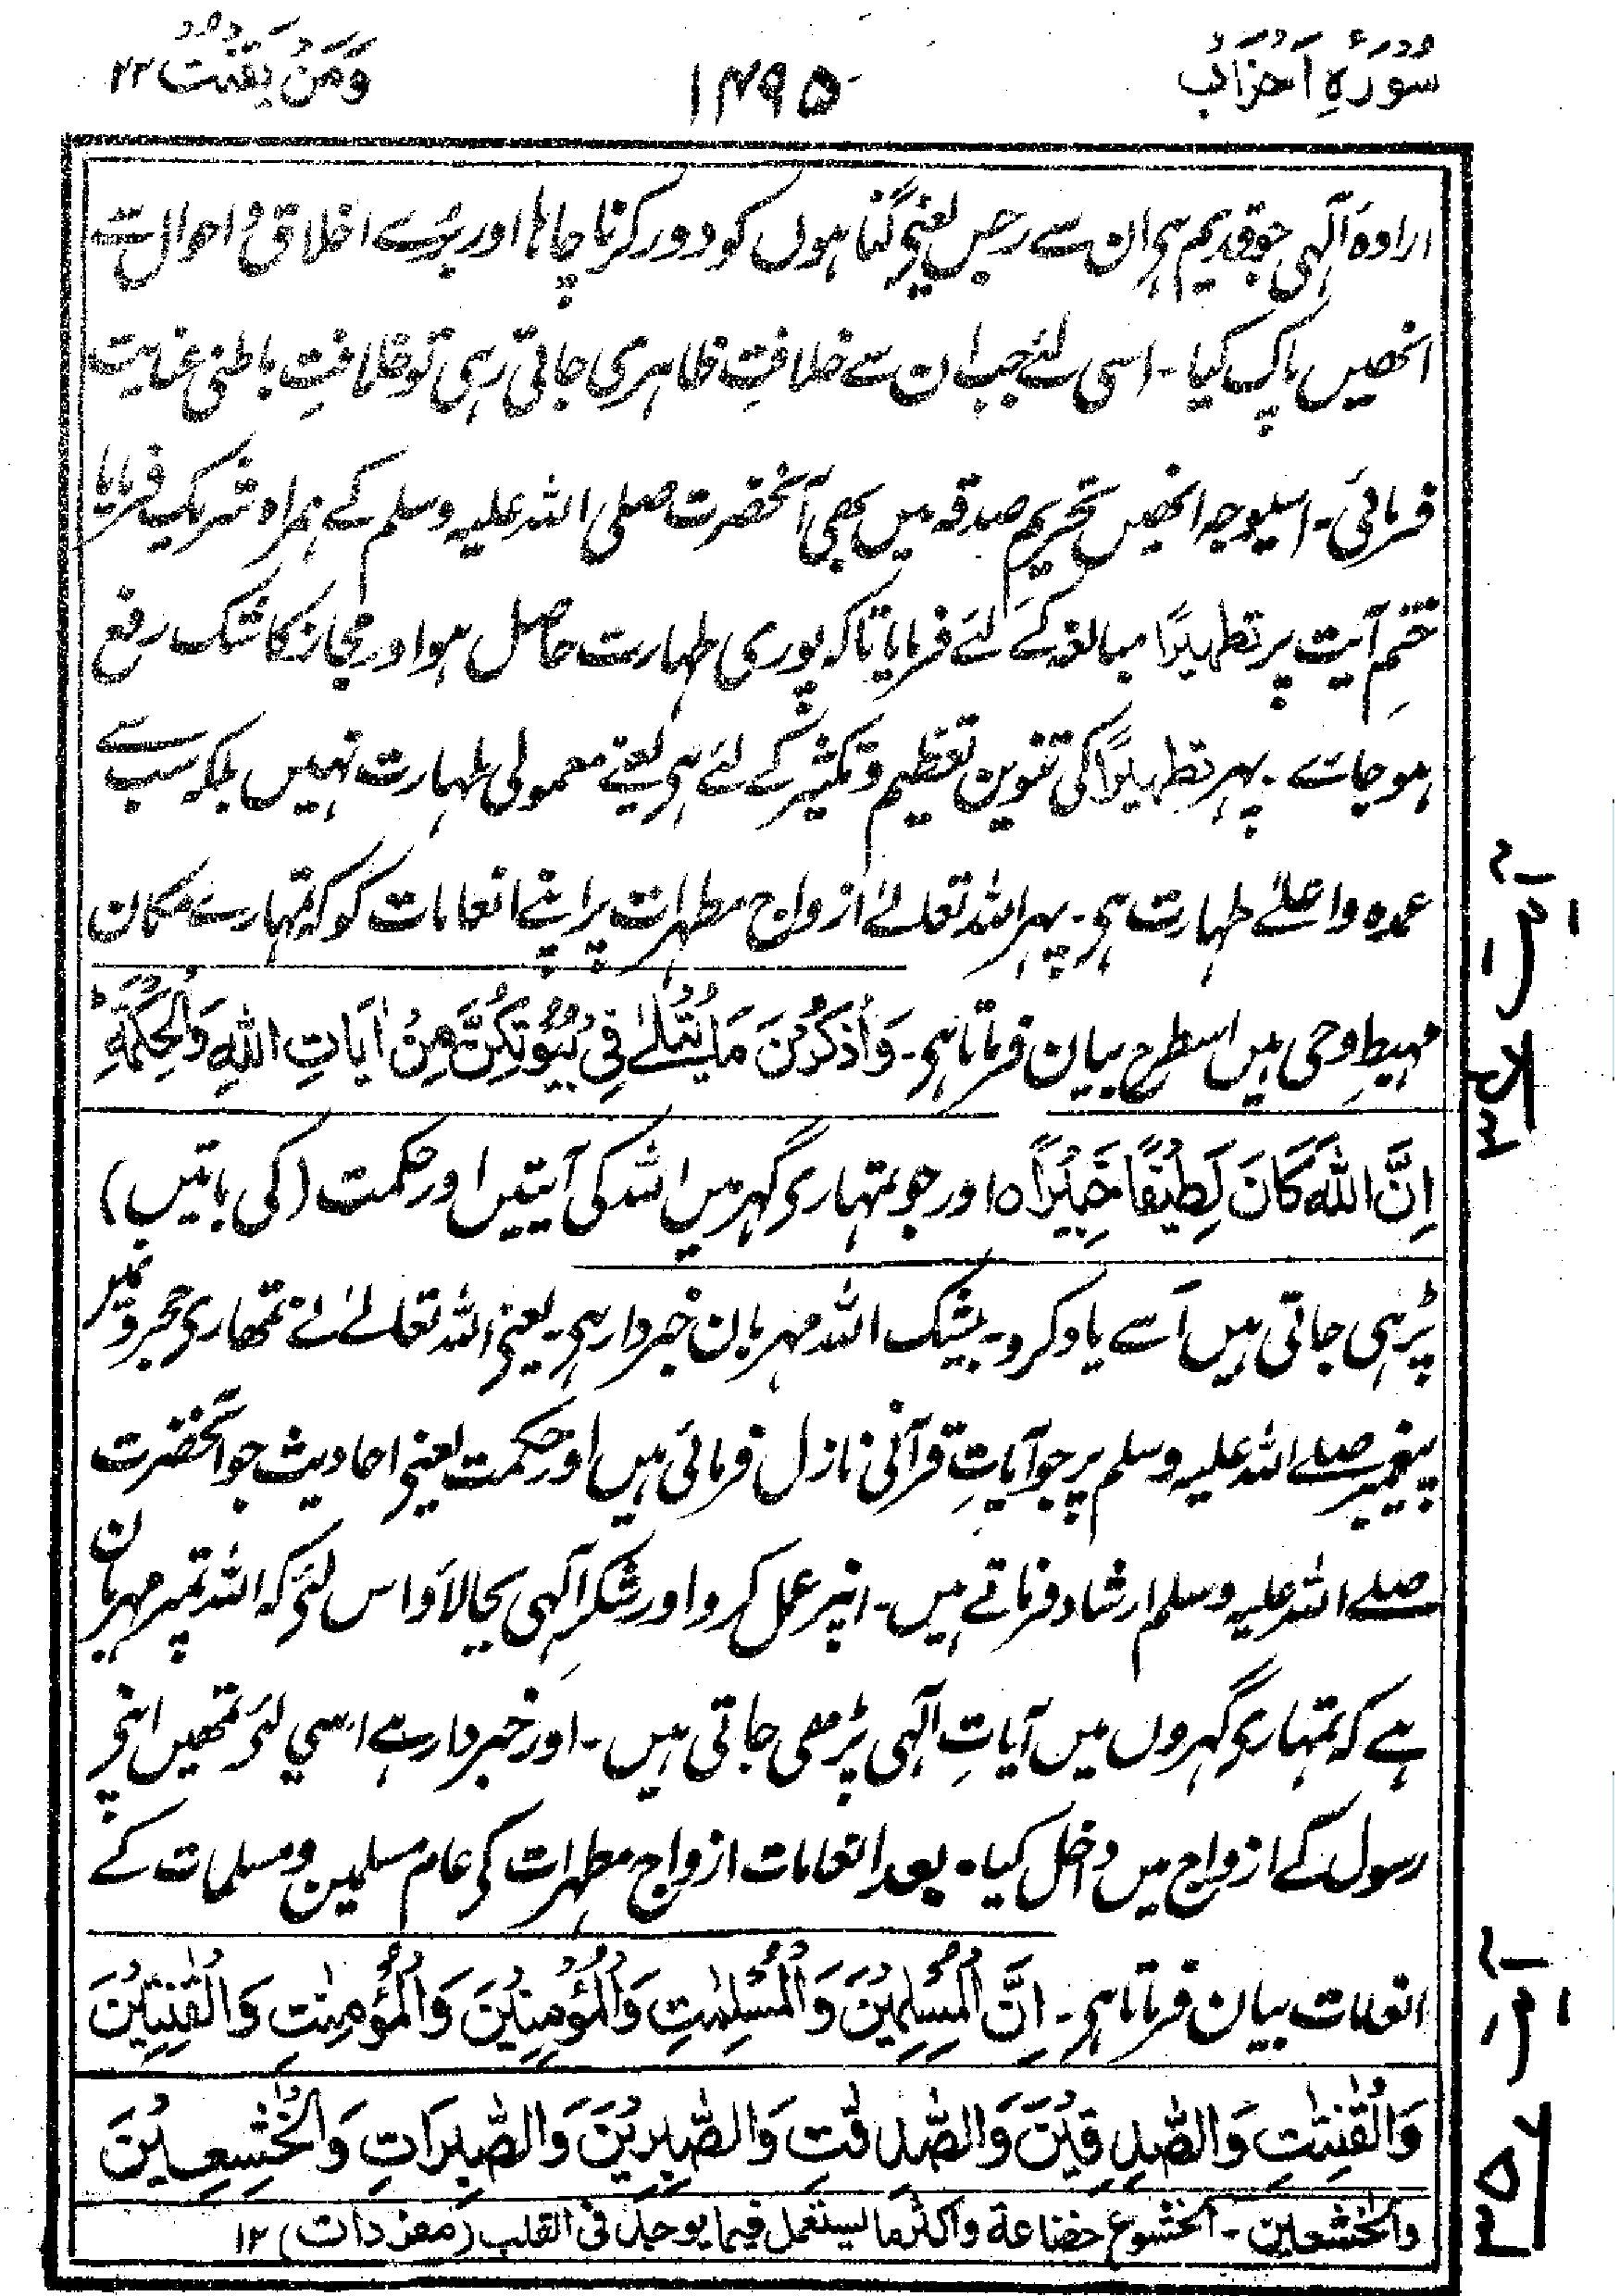 سُوْرَۃِ اَحْزَابْ
۱۴۹۵
وَمَنْ یَقْنُتْ ۲۲
ارادۂ الٰہی جو قدیم ہی ان سے رجس یعنی گناہوں کو دور کرنا چاہا اور بُرے اخلاق و احوال سے
انھیں پاک کیا۔ اسی لئے جب ان سے خلافتِ ظاہری جاتی رہی تو خلافتِ باطنی عنایت
فرمائی۔ اسیوجہ انھیں تحریمِ صدقہ میں بھی آنحضرت صلی اللہ علیہ وسلم کے ہمراہ شریک فرمایا
ختمِ آیت پر تطہیرًا مبالغہ کے لئے فرمایا تاکہ پوری طہارت حاصل ہو اور مجاز کا شک رفع
ہوجائے۔ پہر تطہیرًا کی تنوین تعظیم و تکثیر کے لئے ہی یعنے معمولی طہارت نہیں بلکہ سب سے
عمدہ و اعلےٰ طہارت ہی۔ پہر اللہ تعالےٰ ازواج مطہرات پر اپنے انعامات کو کہ تمہارے مکان
مہبطِ وحی ہیں اسطرح بیان فرماتا ہی۔ وَاذْکُرْنَ مَا یُتْلٰے فِیْ بُیُوْتِکُنَّ مِنْ اٰیَاتِ اللّٰہِ وَالْحِکْمَۃِ ؕ
اِنَّ اللّٰہَ کَانَ لَطِیْفًا خَبِیْرًا ہ اور جو تمہاری گہر میں اللہ کی آیتیں اور حکمت (کی باتیں)
پڑہی جاتی ہیں اُسے یاد کرو۔ بیشک اللہ مہربان خبردار ہی۔ یعنی اللہ تعالےٰ نے تمھاری حجرو نمیں
پیغمبر صلے اللہ علیہ وسلم پر جو آیاتِ قرآنی نازل فرمائی ہیں اور حکمت یعنی احادیث جو آنحضرت
صلے اللہ علیہ وسلم ارشاد فرماتے ہیں۔ انپر عمل کرو اور شکرِ الٰہی بجالاؤ اس لئی کہ اللہ تمپر مہربان
ہے کہ تمہاری گہروں میں آیاتِ الٰہی پڑھی جاتی ہیں۔ اور خبردار ہے اسی لئی تمھیں اپنی
رسول کے ازواج میں داخل کیا۔ بعد انعامات ازواج مطہرات کی عام مسلمین و مسلمات کے
انعامات بیان فرماتا ہی۔ اِنَّ الْمُسْلِمِیْنَ وَالْمُسْلِمٰتِ وَالْمُؤْمِنِیْنَ وَالْمُؤْمِنٰتِ وَالْقٰنِتِیْنَ
وَالْقٰنِتٰتِ وَالصّٰدِقِیْنَ وَالصّٰدِقٰتِ وَالصّٰبِرِیْنَ وَالصّٰبِرَاتِ وَالْخٰشِعِیْنَ
والخٰشعین۔ الخشوع خضاعة واکثر ما یستعمل فیما یوجد فی القلب (مفردات) ۱۲